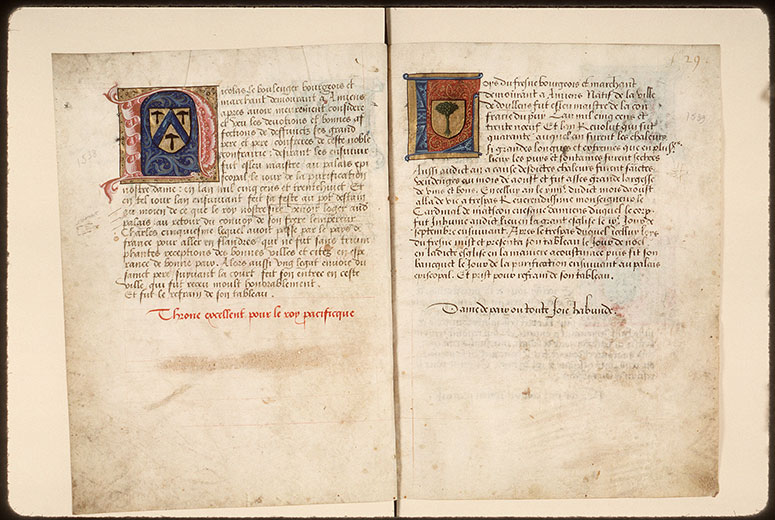 Nicolas le boulenger bourgeois et
marchant demourant a Amiens
apres avoir meurement considere
et veu les devotions et bonnes af
fections de deffunctz ses grand
pere et pere confreres de ceste noble
confrairie: devant les ensuivir
fut esleu maistre au palais epi
scopal le jour de la purification
nostre dame: en lan mil cinq cens et trentehuict Et
en tel jour lan ensuivant feit sa feste au
au moien de ce que le roy nostre sire debvoit loger aud
palais au retour du convoy de son frere lempereur
Charles cinquiesme lequel avoit passe par le pays de
france pour aller en flandres, qui ne fut sans trium
phantes receptions des bonnes villes et citez en espe
rance de bonne paix. Alors aussi ung legat envoie du
sainct pere suyvant la court feit son entree en ceste
ville, qui fut receu moult honorablement.
Et fut le refrain de son tableau.
Throne excellent pour le roy pacificque
1538
29
Jors du fresne bourgeois et marchant
demourant a Amiens Natif de la ville
de doullens fut esleu maistre de la con
frarie du puy Lan mil cinq cens et
trente noeuf Et lan Revolut qui fut
quarante auquel an furent les chaleurs
sy grandes longues et extremes que en plusrs
lieux les puys et fontaines furent sechees
Aussi audict an a cause desdictes chaleurs furent faictes
vendenges au mois de aoust et fut asses grande largesse
de vins et bons Encelluy an le dudict mois daoust
alla de vie a trespas Reverendissime monseigneur le
Cardinal de mascon evesque damiens duquel le corps
fut Inhume audict lieu en la grant eglise le Jour de
septembre ensuivant. Apres le trespas duquel icelluy Jors
du fresne mist et presenta son tableau le Jour de noel
en ladicte eglise en la maniere acoustumee puis fit son
bancquet le Jour de la purification ensuivant au palais
episcopal. Et prist pour refrain de son tableau.
Dame de paix ou toute Joie habunde
1539